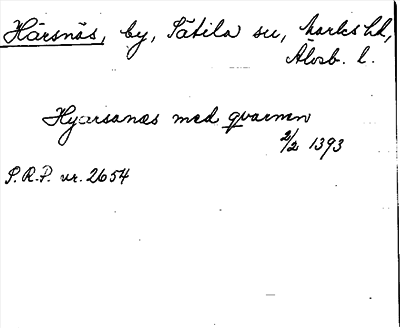 Härsnäs, by, Sätila sn, Marks hd,
Älvsb. l.
Hyarsanæs med qvarnen
2/2 1393
S.R.P. nr. 2654